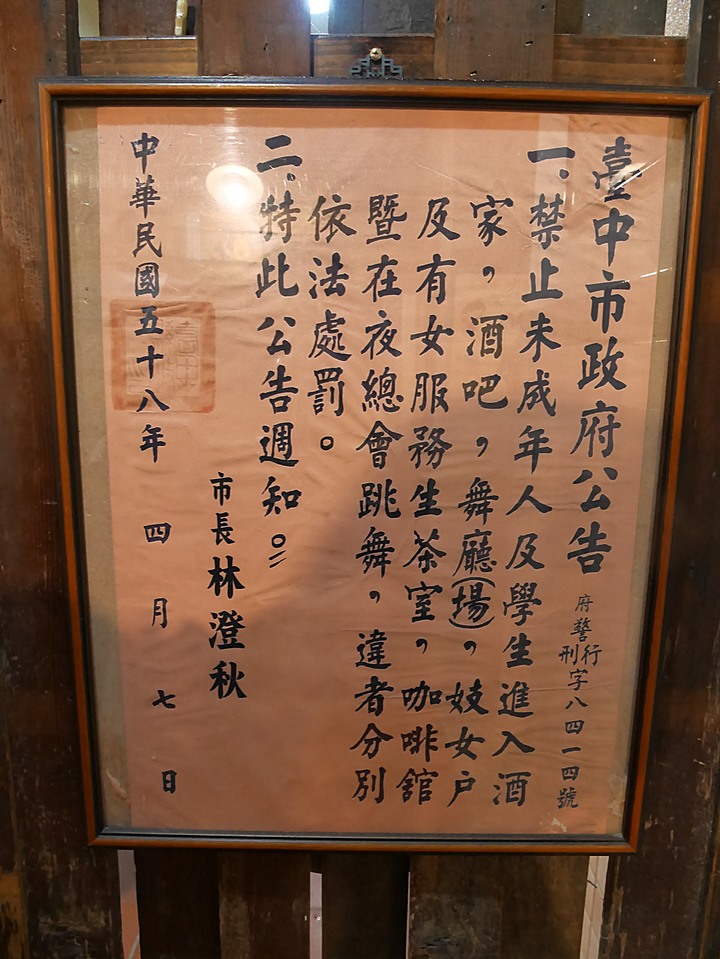 臺中市政府公告
府警行刑字八四一四號
一.禁止未成年人及學生進入酒
家,酒吧,舞廳(場),妓女户
及有女服務生茶室,咖啡舘
暨在夜總會跳舞,違者分別
依法處罰。
二.特此公告週知。
市長林澄秋
中華民國五十八年四月七日